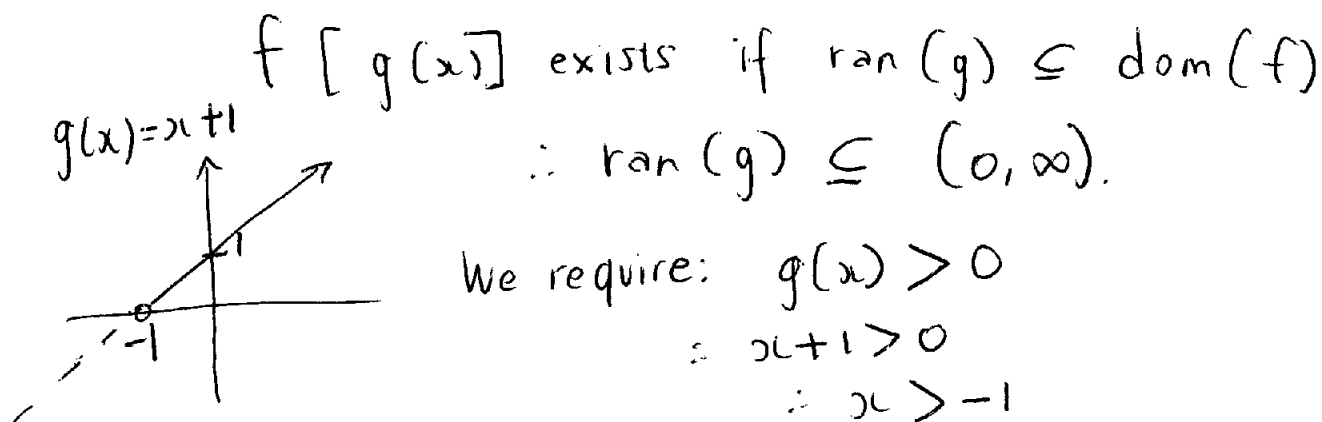 f [g(x)] exists if ran(g) ⊆ dom(f)
g(x)=x+1
∴ ran(g) ⊆ (0,∞).
1
We require: g(x) > 0
-1
∴ x+1>0
∴ x > -1